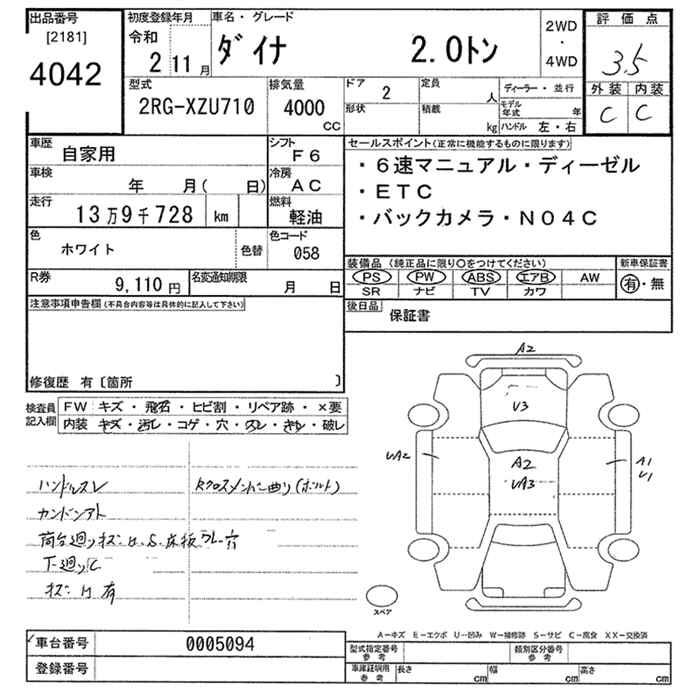 出品番号
[2181]
4042
初度登録年月
令和
2 11月
車名・グレード
ダイナ 2.0トン
2WD
・
4WD
評価点
3.5
外装 内装
C C
型式
2RG-XZU710
排気量
4000
cc
ドア
2
定員
人
形状
積載
kg
ディーラー・並行
モデル年式 年
ハンドル 左・右
車歴
自家用
シフト
F6
車検
年 月( 日)
冷房
AC
走行
13万9千728 km
燃料
軽油
色
ホワイト
色替
色コード
058
R券
9,110円
名変通知期限
月 日
セールスポイント(正常に機能するものに限ります)
・6速マニュアル・ディーゼル
・ETC
・バックカメラ・N04C
装備品(純正品に限り○をつけてください)
新車保証書
PS PW ABS エアB AW
SR ナビ TV カワ
有・無
後日品
保証書
注意事項申告欄(不具合内容等は具体的に記入して下さい)
修復歴 有〔箇所 〕
検査員
記入欄
FW キズ・飛石・ヒビ割・リペア跡・×要
内装 キズ・汚レ・コゲ・穴・スレ・キレ・破レ
ハンドルスレ
カンドンアト
荷台廻りキズ.H.S.床板ワレ一穴
下廻りC
キズ.H有
Rクロスメンバー曲り(ボルト)
A2
V3
A2
UA3
UA2
A1
U1
スペア
A−キズ E−エクボ U−凹み W−補修跡 S−サビ C−腐食 XX−交換済
車台番号
0005094
登録番号
型式指定番号
参考
類別区分番号
参考
車庫証明用
参考
長さ cm
幅 cm
高さ cm